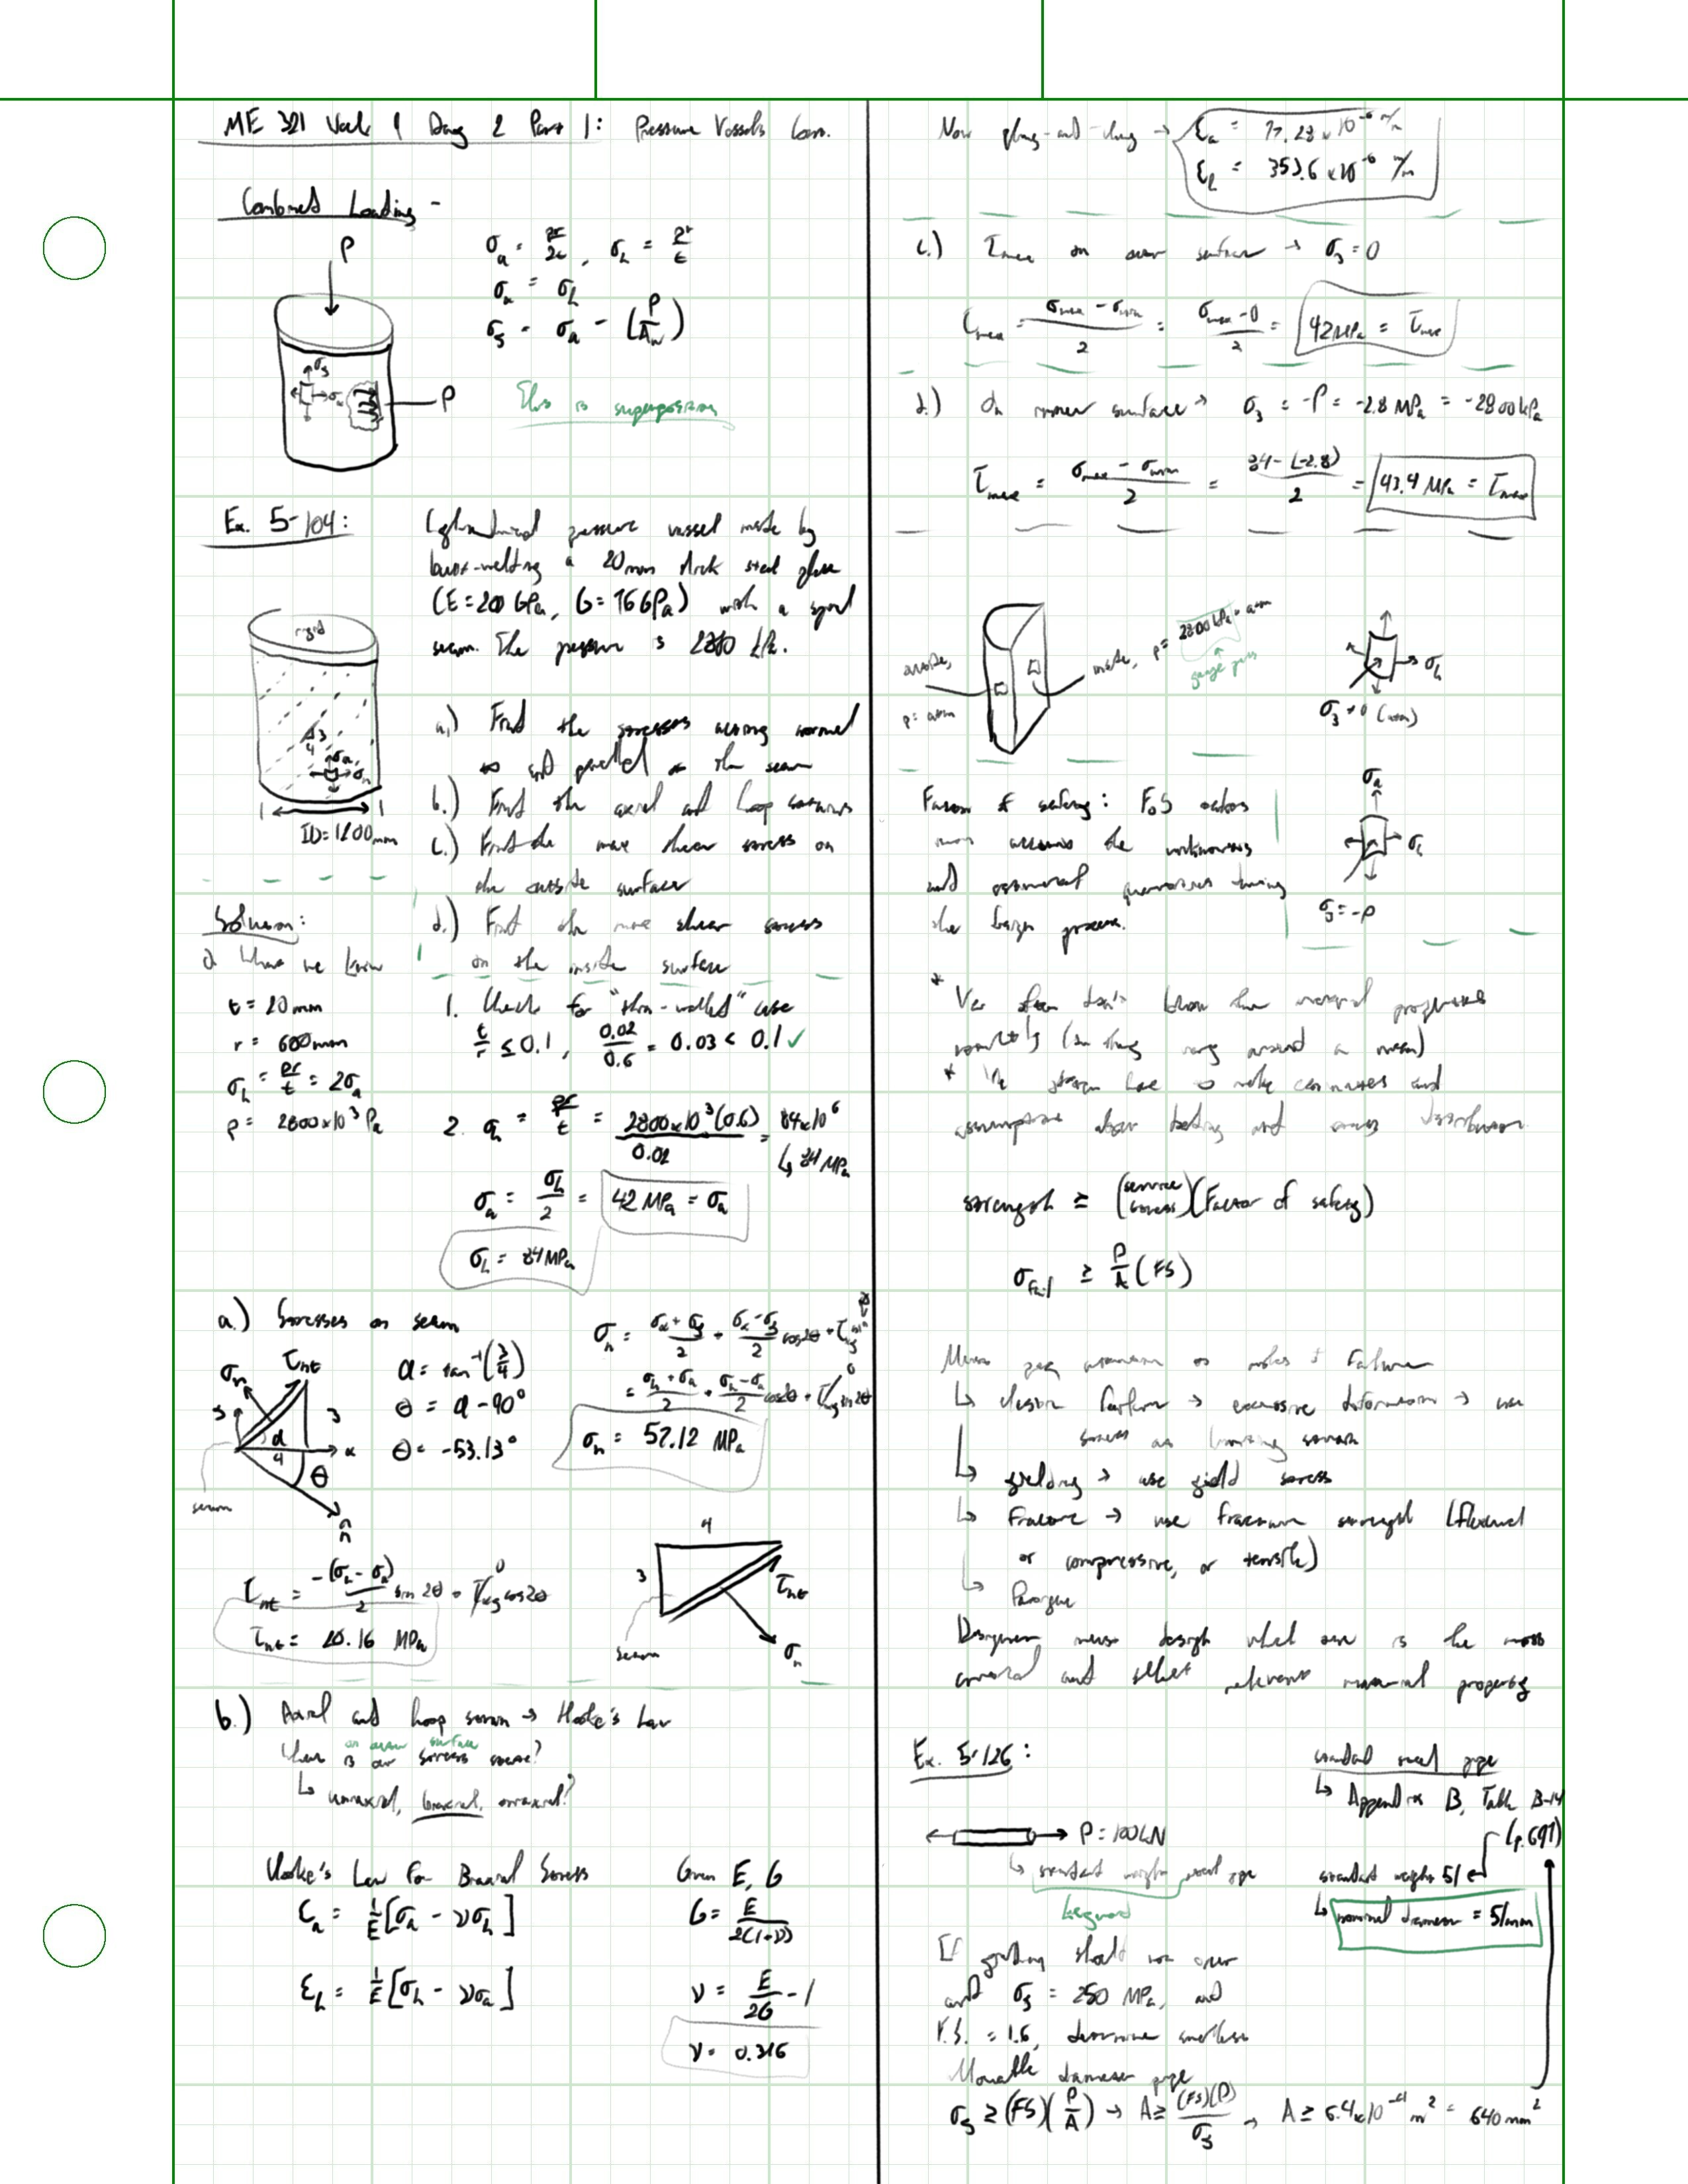 ME 321 Week 9 Day 2 Part 1: Pressure Vessels Con.
Combined Loading -
P
σa = pr/2t, σh = pr/t
σx = σh
σy = σa - (P/Aw)
σy
σx
P
This is superposition
Ex. 5-104:
Cylindrical pressure vessel made by
butt-welding a 20mm thick steel plate
(E=200 GPa, G=76GPa) with a spiral
seam. The pressure is 2800 kPa.
rigid
3
4
σa
σh
ID=1200mm
a.) Find the stresses acting normal
to and parallel to the seam
b.) Find the axial and hoop strains
c.) Find the max shear stress on
the outside surface
d.) Find the max shear stress
on the inside surface
Solution:
What we know
t = 20mm
r = 600mm
σh = pr/t = 2σa
P = 2800x10^3 Pa
1. Check for "thin-walled" case
t/r ≤ 0.1, 0.02/0.6 = 0.03 < 0.1 ✓
2. σh = pr/t = 2800x10^3(0.6)/0.02 = 84x10^6
↳ 84 MPa
σa = σh/2 = 42 MPa = σa
σh = 84MPa
a.) Stresses on seam
σn
τnt
y
3
α
4
x
θ
n̂
seam
α = tan^-1(3/4)
θ = α-90°
θ = -53.13°
σn = σx+σy/2 + σx-σy/2 cos2θ + τxy sin2θ
0
= σh+σa/2 + σh-σa/2 cos2θ + τxy sin2θ
0
σn = 57.12 MPa
τnt = -(σh-σa)/2 sin 2θ + τxy cos2θ
0
τnt = 20.16 MPa
4
3
τnt
seam
σn
b.) Axial and hoop strain → Hooke's Law
on outer surface
What is our stress state?
↳ uniaxial, biaxial, triaxial?
Hooke's Law For Biaxial Stress
εa = 1/E[σa - νσh]
εh = 1/E[σh - νσa]
Given E, G
G = E/2(1+ν)
ν = E/2G - 1
ν = 0.316
Now plug-and-chug → εa = 77.28x10^-6 m/m
εh = 353.6x10^-6 m/m
c.) τmax on outer surface → σ3 = 0
τmax = σmax - σmin/2 = σmax-0/2 = 42MPa = τmax
d.) On inner surface → σ3 = -P = -2.8 MPa = -2800kPa
τmax = σmax - σmin/2 = 84-(-2.8)/2 = 43.4 MPa = τmax
outside,
p = atm
inside, p = 2800kPa + atm
gauge pres
σh
σ3 = 0 (atm)
σa
σh
σ3 = -P
Factor of safety: FoS takes
into account the unknowns
and estimated quantities during
the design process.
* We often don't know the material properties
exactly (as they vary around a mean)
* We often have to make estimates and
assumptions about loading and stress distribution
strength ≥ (service stress)(Factor of safety)
σfail ≥ P/A (FS)
Must pay attention to modes of Failure
↳ elastic failure → excessive deformation → use
stress as limiting strain
↳ yielding → use yield stress
↳ Fracture → use fracture strength (flexural
or compressive, or tensile)
↳ Fatigue
Designer must design what one is the most
critical and select relevant material property
Ex. 5-126:
P = 100kN
↳ standard weight steel pipe
keyword
If yielding should not occur
and σy = 250 MPa, and
F.S. = 1.6, determine smallest
allowable diameter pipe
standard steel pipe
↳ Appendix B, Table B-14
(p.697)
standard weight 51
↳ nominal diameter = 51mm
σy ≥ (FS)(P/A) → A ≥ (FS)(P)/σy → A ≥ 6.4x10^-4 m^2 = 640 mm^2